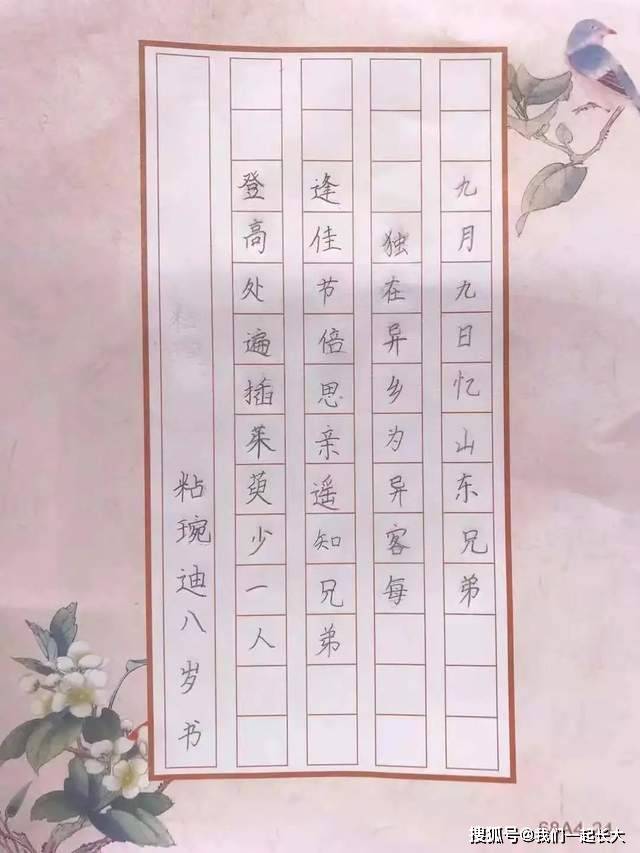 九月九日忆山东兄弟
独在异乡为异客每
逢佳节倍思亲遥知兄弟
登高处遍插茱萸少一人
粘琬迪八岁书
68A4-24
搜狐号@我们一起长大